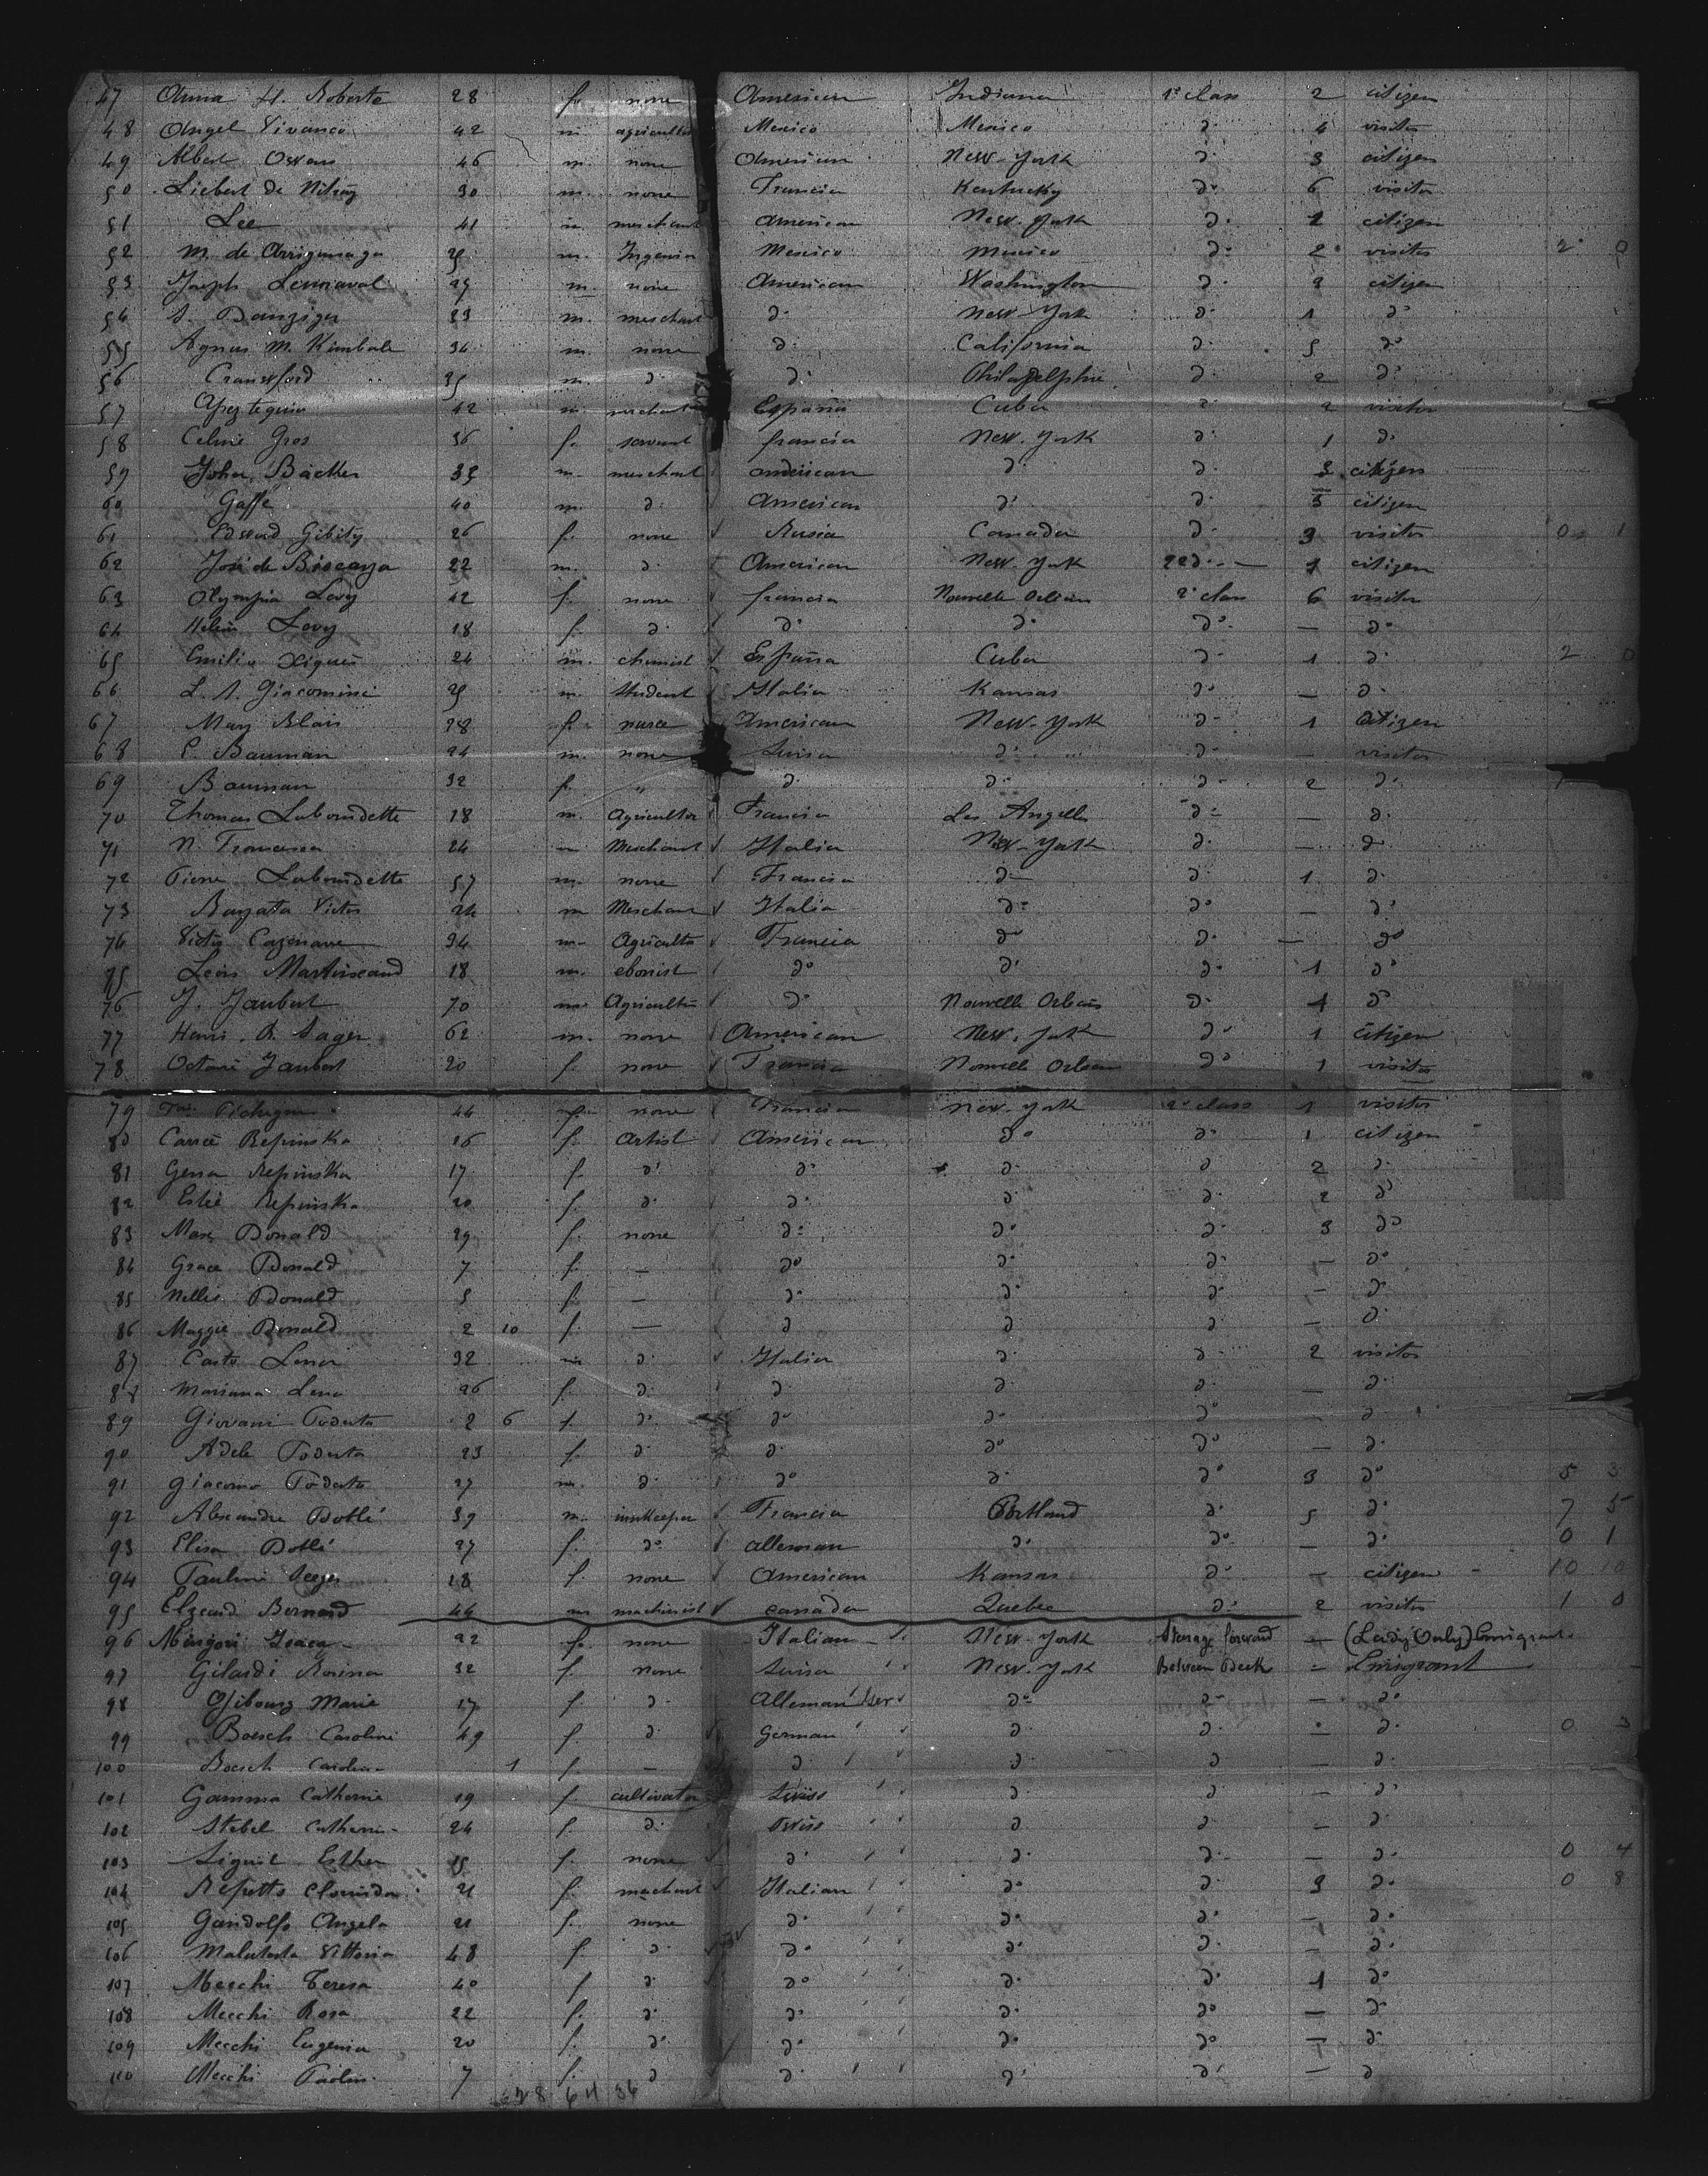 47 Anna H. Roberts 28 f. none American Indiana 1º class 2 citizen
48 Angel Vivanco 42 m agricultor Mexico Mexico dº 4 visitor
49 Albert Owens 46 m. none American New-York dº 3 citizen
50 Liebert de Nitray 30 m. none Francia Kentucky dº 6 visitor
51 Lee 41 m. merchant American New-York dº 2 citizen
52 M. de Arrigunaga 25 m. Ingenior Mexico Mexico dº 2 visitor 2 0
53 Joseph 27 m. none American Washington dº 2 citizen
54 S. Danziger 33 m. merchant dº New-York dº 1 dº
55 Agnus M. Kimbale 34 m. none dº California dº 5 dº
56 Crawford 35 m. dº dº Philadelphie dº 2 dº
57 Apezteguia 42 m. merchant España Cuba dº 2 visitor
58 Celine Gros 36 f. servant francia New-York dº 1 dº
59 John Bäcker 35 m. merchant american dº dº 3 citizen
60 Gaffé 40 m. dº American dº dº 5 citizen
61 Edward Gibity 26 f. none Rusia Canada dº 3 visitor 0 1
62 José de Biscaya 22 m. dº American New-York 2º dº 1 citizen
63 Olympia Levy 42 f. none francia Nouvelle Orleans 2º class 6 visitor
64 Helene Levy 18 f. dº dº dº dº — dº
65 Emilio Xiques 24 m. chemist España Cuba dº 1 dº 2 0
66 L. A. Giacomini 25 m. student Italia Kansas dº — dº
67 Mary Blais 28 f. nurse American New-York dº 1 citizen
68 E. Bauman 24 m. none Suisa dº dº — visitor
69 Bauman 32 f. " dº dº dº 2 dº
70 Thomas Labourdette 18 m. Agricultor Francia Los Angelles dº — dº
71 N. Francesca 24 m Merchant Italia New-York dº — dº
72 Pierre Labourdette 57 m. none Francia dº dº 1 dº
73 Bazzata Victor 24 m Merchant Italia dº dº — dº
74 Victor Cazenave 34 m. Agriculto Francia dº dº — dº
75 Leon Martineaud 18 m. ebonist dº dº dº 1 dº
76 J. Jaubert 70 m. Agricultor dº Nouvelle Orleans dº 4 dº
77 Henri R. Sager 62 m. none American New-York dº 1 citizen
78 Octavie Jaubert 20 f. none Francia Nouvelle Orleans dº 1 visitor
79 44 none Francia New-York 2º class 1 visitor
80 Carrie Repinska 16 f. Artist American dº dº 1 citizen
81 Gena Repinska 17 f. dº dº dº dº 2 dº
82 Estée Repinska 20 f. dº dº dº dº 2 dº
83 Mary Donald 29 f. none dº dº dº 3 dº
84 Grace Donald 7 f. — dº dº dº — dº
85 Nellie Donald 5 f. — dº dº dº — dº
86 Maggie Donald 2 10 f. — dº dº dº — dº
87 Casto Lena 32 m dº Italia dº dº 2 visitor
88 Mariana Lena 26 f. dº dº dº dº — dº
89 Giovani Poderta 2 6 f. dº dº dº dº — dº
90 Adele Poderta 23 f. dº dº dº dº — dº
91 Giacomo Poderta 27 m. dº dº dº dº 3 dº 5 3
92 Alexandre Dotlé 39 m. innkeeper Francia Portland dº 5 dº 7 5
93 Elisa Dotlé 27 f. dº alleman dº dº — dº 0 1
94 Pauline Seeger 18 f. none American Kansas dº — citizen 10 10
95 Elzeard Bernard 44 m machinist canada Quebec dº 2 visitor 1 0
96 Mingori 22 f. none Italian New-York Steerage forward — (Lady Only) Emigrant
97 Gilardi Rosina 32 f. none Suisa New-York Between Deck — Emigrant
98 Marie 17 f. dº Alleman Ger dº dº — dº
99 Boesch Caroline 49 f. dº German dº dº — dº 0 3
100 Boesch Carolina 1 f. — dº dº dº — dº
101 Gamma Catherine 19 f. cultivator Swiss dº dº — dº
102 Stebel Catherine 24 f. dº Swiss dº dº — dº
103 Esther 15 f. none dº dº dº — dº 0 4
104 Repetto Clorinda 21 f. merchant Italian dº dº 3 dº 0 8
105 Gandolfo Angela 21 f. none dº dº dº — dº
106 Malatesta Vittoria 48 f dº dº dº dº — dº
107 Mecchi Teresa 40 f dº dº dº dº 1 dº
108 Mecchi Rosa 22 f. dº dº dº dº — dº
109 Mecchi Eugenia 20 f. dº dº dº dº — dº
110 Mecchi Paolin 7 f. dº dº dº dº — dº